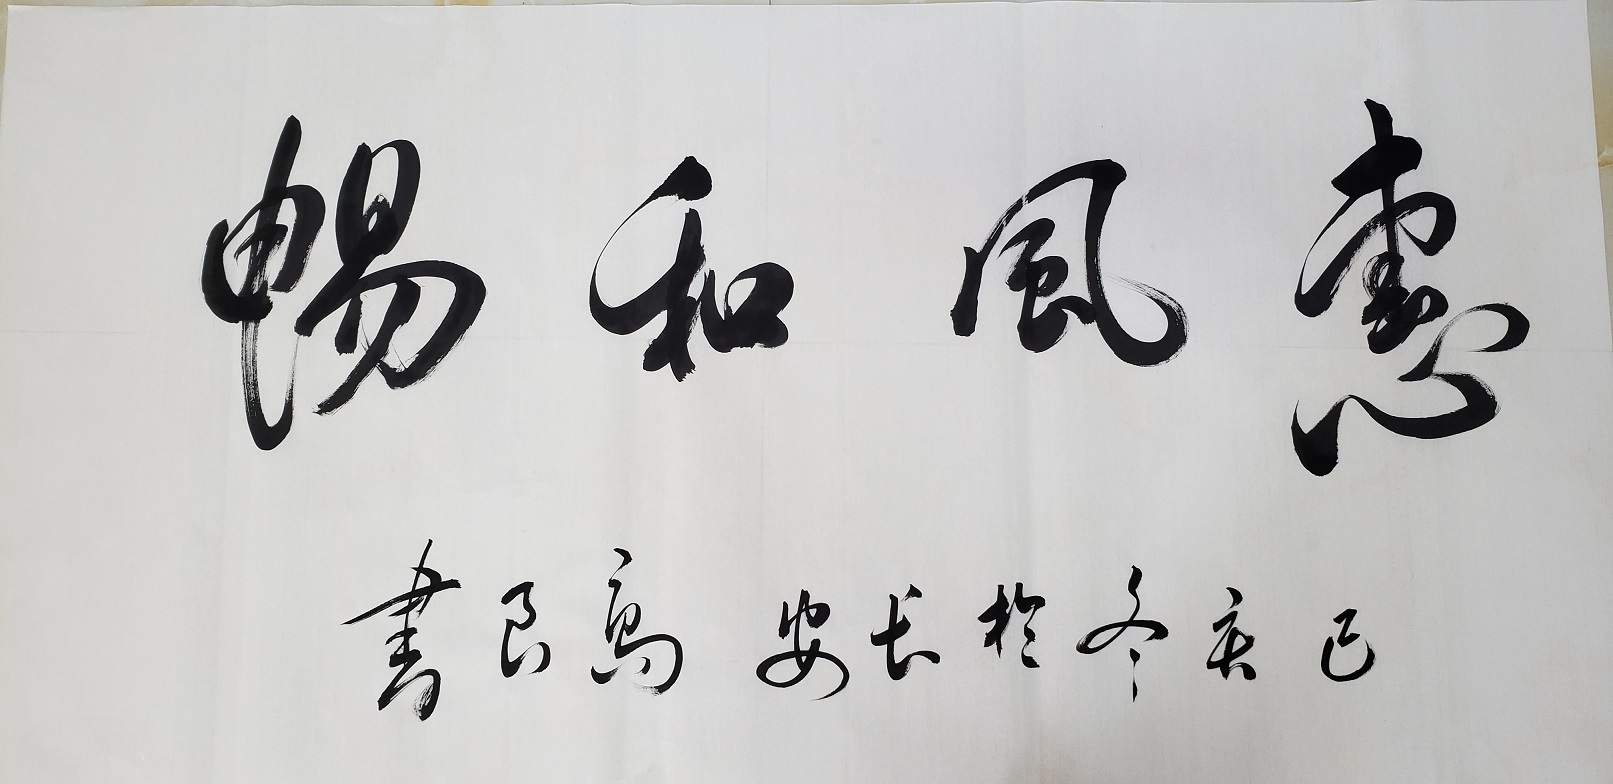 惠風和暢
己亥冬於長安高良書